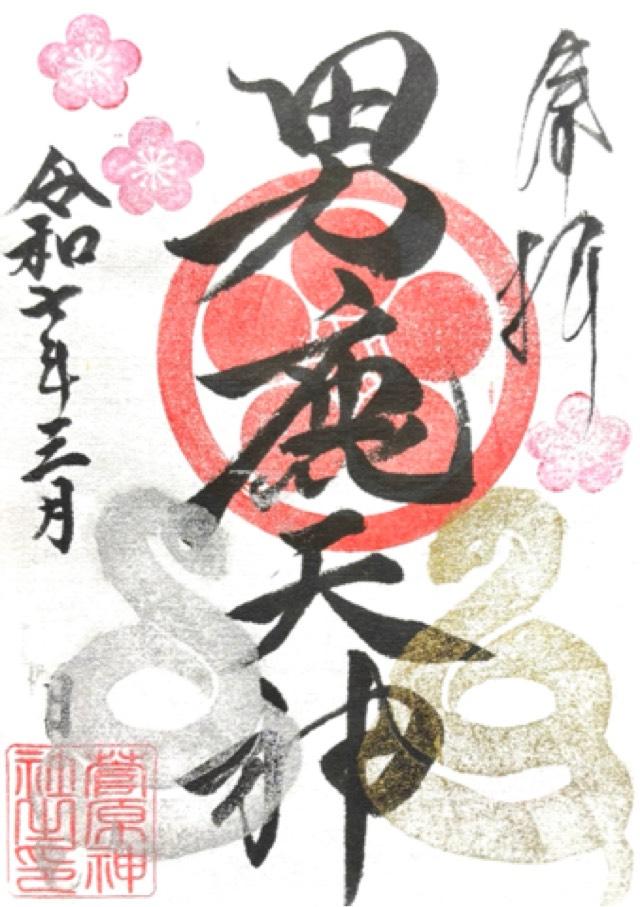 奉拝
男鹿天神
令和七年三月
菅原神
社之印